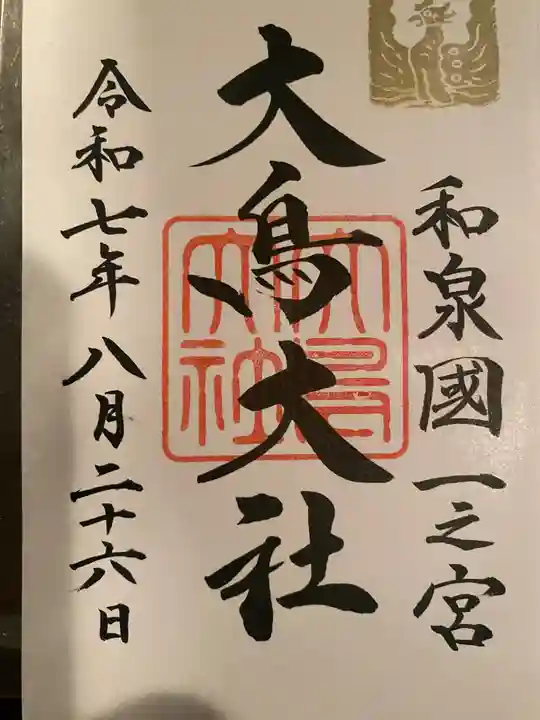 和泉國一之宮
大鳥大社
大鳥大社
令和七年八月二十六日